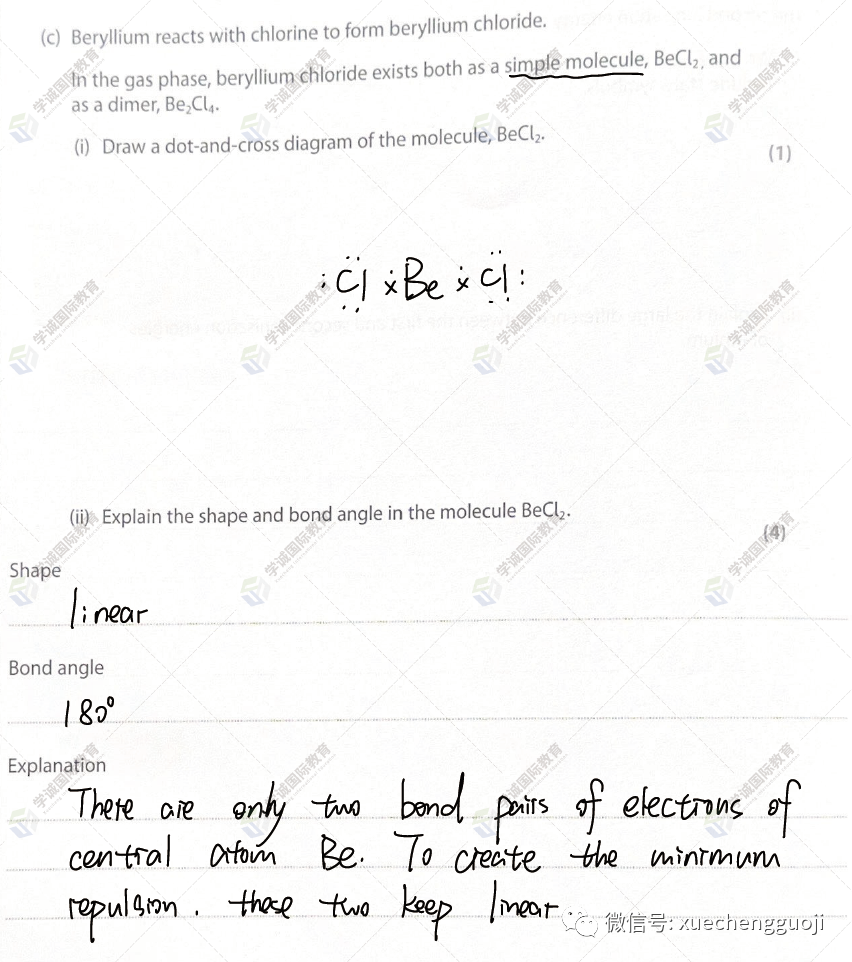 (c) Beryllium reacts with chlorine to form beryllium chloride.
In the gas phase, beryllium chloride exists both as a simple molecule, BeCl₂, and
as a dimer, Be₂Cl₄.
(i) Draw a dot-and-cross diagram of the molecule, BeCl₂.
(1)
Cl × Be × Cl
(ii) Explain the shape and bond angle in the molecule BeCl₂.
(4)
Shape
linear
Bond angle
180°
Explanation
There are only two bond pairs of electrons of
central atom Be. To create the minimum
repulsion. those two keep linear
微信号: xuechengguoji
学诚国际教育